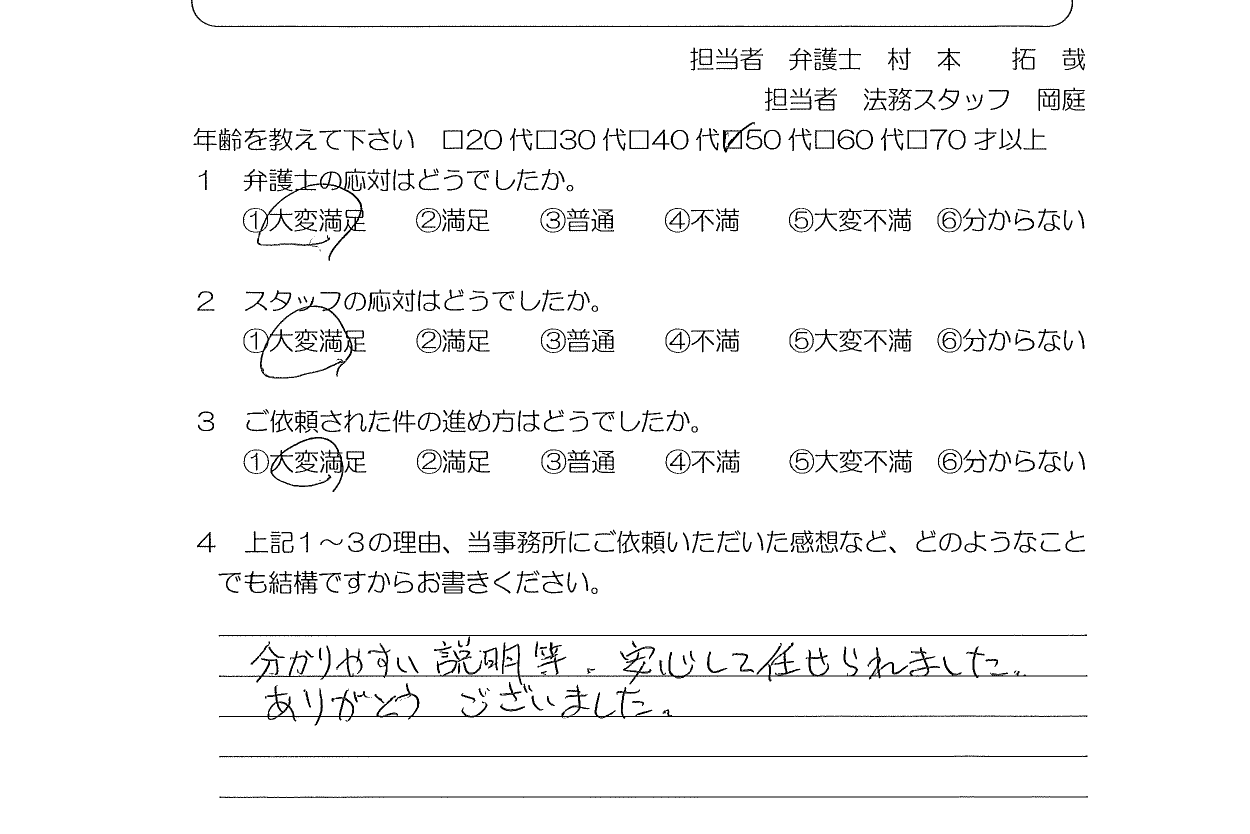 担当者　弁護士　村　本　　拓　哉
担当者　法務スタッフ　岡庭
年齢を教えて下さい　□20代□30代□40代☑50代□60代□70才以上
１　弁護士の応対はどうでしたか。
①大変満足　　②満足　　③普通　　④不満　　⑤大変不満　⑥分からない
２　スタッフの応対はどうでしたか。
①大変満足　　②満足　　③普通　　④不満　　⑤大変不満　⑥分からない
３　ご依頼された件の進め方はどうでしたか。
①大変満足　　②満足　　③普通　　④不満　　⑤大変不満　⑥分からない
４　上記１～３の理由、当事務所にご依頼いただいた感想など、どのようなこと
でも結構ですからお書きください。
分かりやすい説明等、安心して任せられました。
ありがとう ございました。